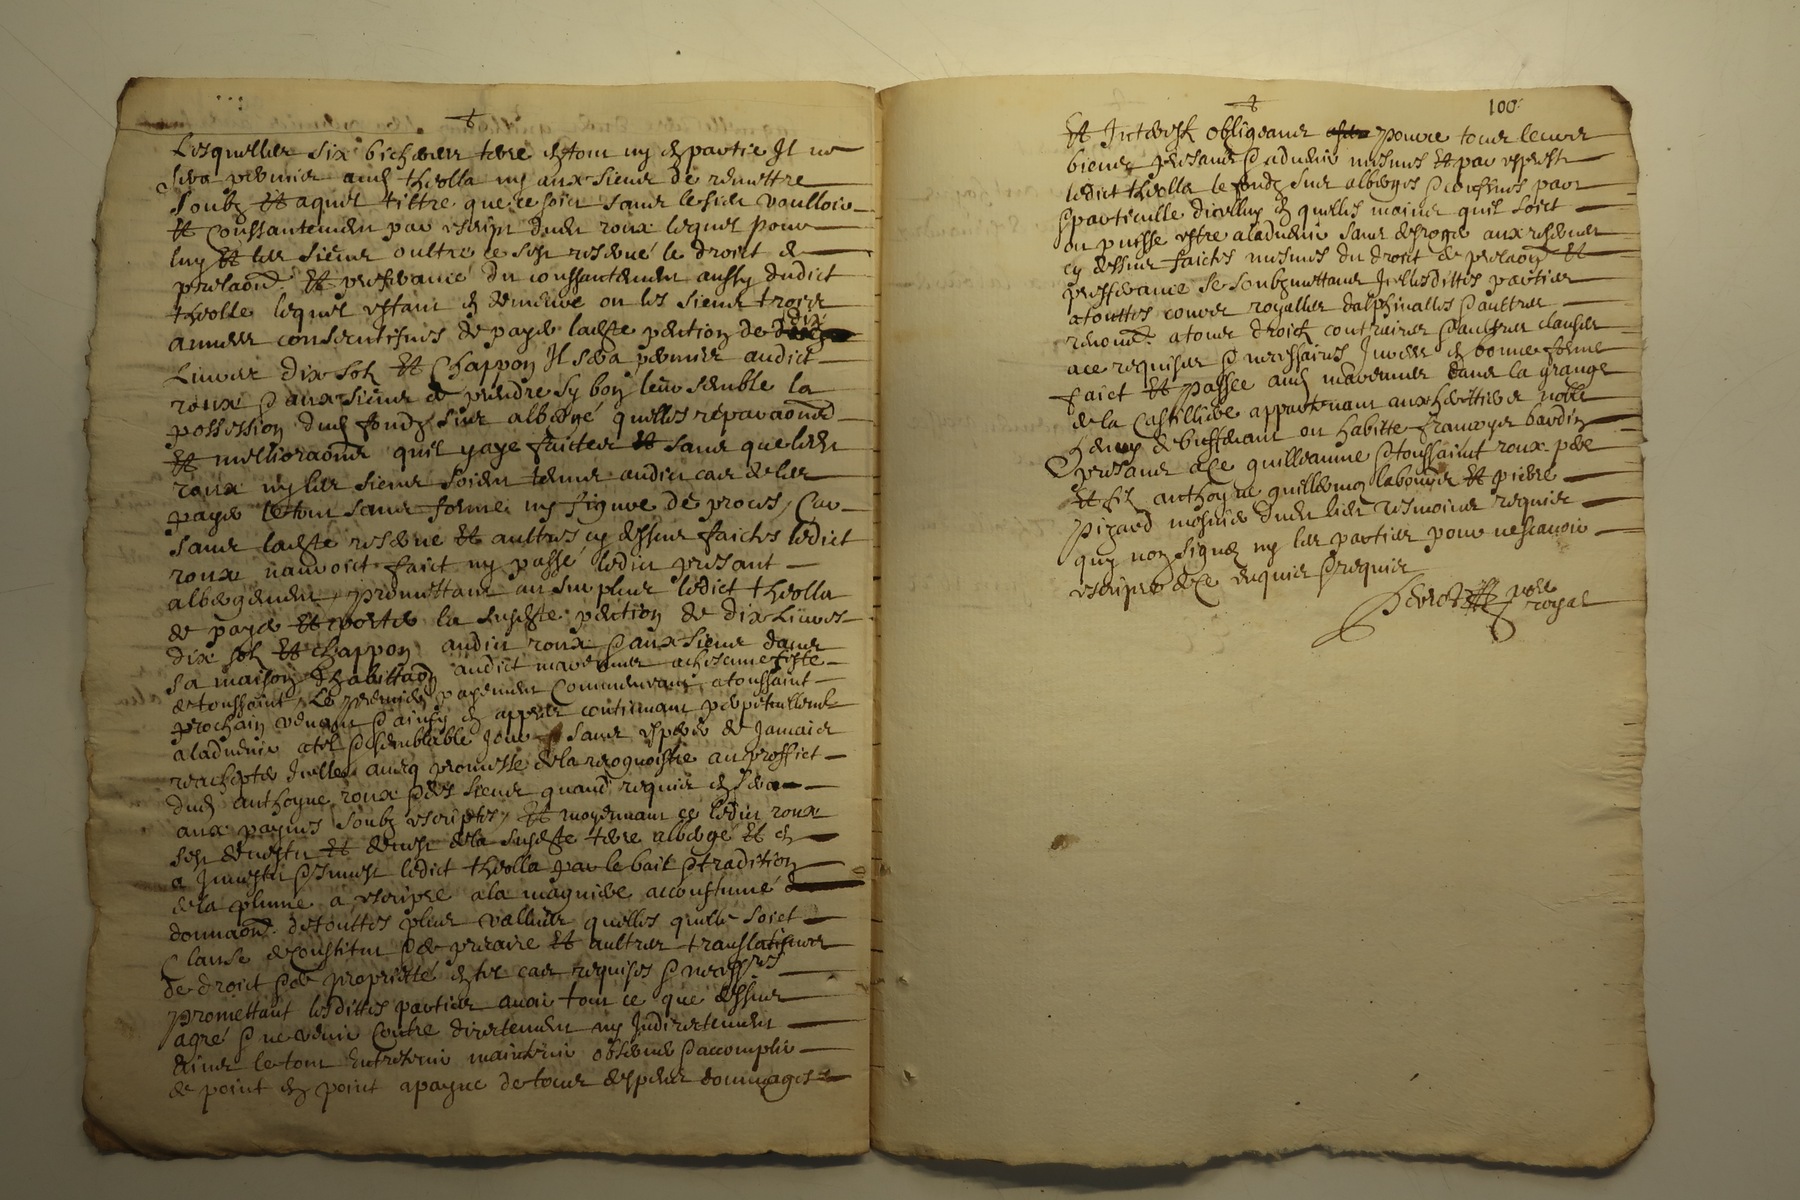 Lesquelles six bicherees terre en tout ny en partie Il ne
sera permis aud theolla ny aux siens de remettre
soubz et aquel tiltre que ce soit sans le sien voulloir
et consentement par escript dud roux lequel pour
luy et les siens oultre ce sest reservé le droict de
prelaon et presferance du conssantement aussy dudict
theolle lequel estant en demeure ou les siens trois
annees consecutifves de payer ladte pention de dix
Livres dix solz et Chappon Il sera permis audict
roux et aux siens de prendre sy bon leur semble la
possession dud fondz sus albergé quelles reparaons
et mellioraons quil y aye faictes et sans que led
roux ny les siens soient tenus audict cas de les
payer le tout sans forme ny figure de proces, Car
sans ladte reserve et aultres cy dessus faictes ledict
roux nauroit faict ny passé ledict presant
albergement, promettant au surplus ledict theolla
de payer et porter la susdte pention de dix Livres
dix solz et chappon audict roux et aux siens dans
sa maison dhabittaon audict mavennes a chescune feste
de toussaint, Le premier payement Commencant a toussaint
prochain venant et ainsy en appres continuant perpetuellemt
a ladvenir a tel et semblable Jour sans espoir de Jamais
rachepter Icelles avecq promesse de la recognoistre au proffict
dud anthoyne roux et des siens quand requis en sera
aux paynes soubz escriptes, et moyennant ce ledict roux
sest devestu et devest de la susdte terre albergé et en
a Investu et Invest ledict theolla par le bail et tradition
de la plume a escripre a la magniere accoustumé
donnaon de touttes plus vallues quelles quelle soict
Clause de constitut et de precaire et aultres translatifves
de droict et de propriette en tel cas requises et necesres
promettant lesdittes parties avoir tout ce que dessus
agreé et ne venir Contre directement ny Indirectement
Ains le tout Entretenir maintenir observer et accomplir
de point en point a payne de tous despens dommages
100
Et Interestz obligeans pource tous leurs
biens presans et advenir mesmes et par expres
ledict theolla le fondz sus albergés et confines part
et particulle dicelluy en quelles mains quil soict
ou puisse estre a ladvenir sans desroger aux reserves
cy dessus faictes mesmes du droit de prelaon et
presferance se soubzmettans Icellesdittes parties
a touttes cours royalles dalphinalles et aultres
renoncé a tous droictz contraires et aultres clauses
a ce requises et necessaires Juré en bonne forme
faict et passée aud mavennes dans la grange
de la Castilliere appartenant aux heritiers noble
henry de buffevant ou habitte francoys bardin
presans a ce guilleaume et toussaint roux pere
et filz anthoyne guillermoz laboureur et pierre
Pizard mosnier dud lieu tesmoins requis
quy nont signez ny les parties pour ne scavoir
escripre de ce enquis et requis
royal